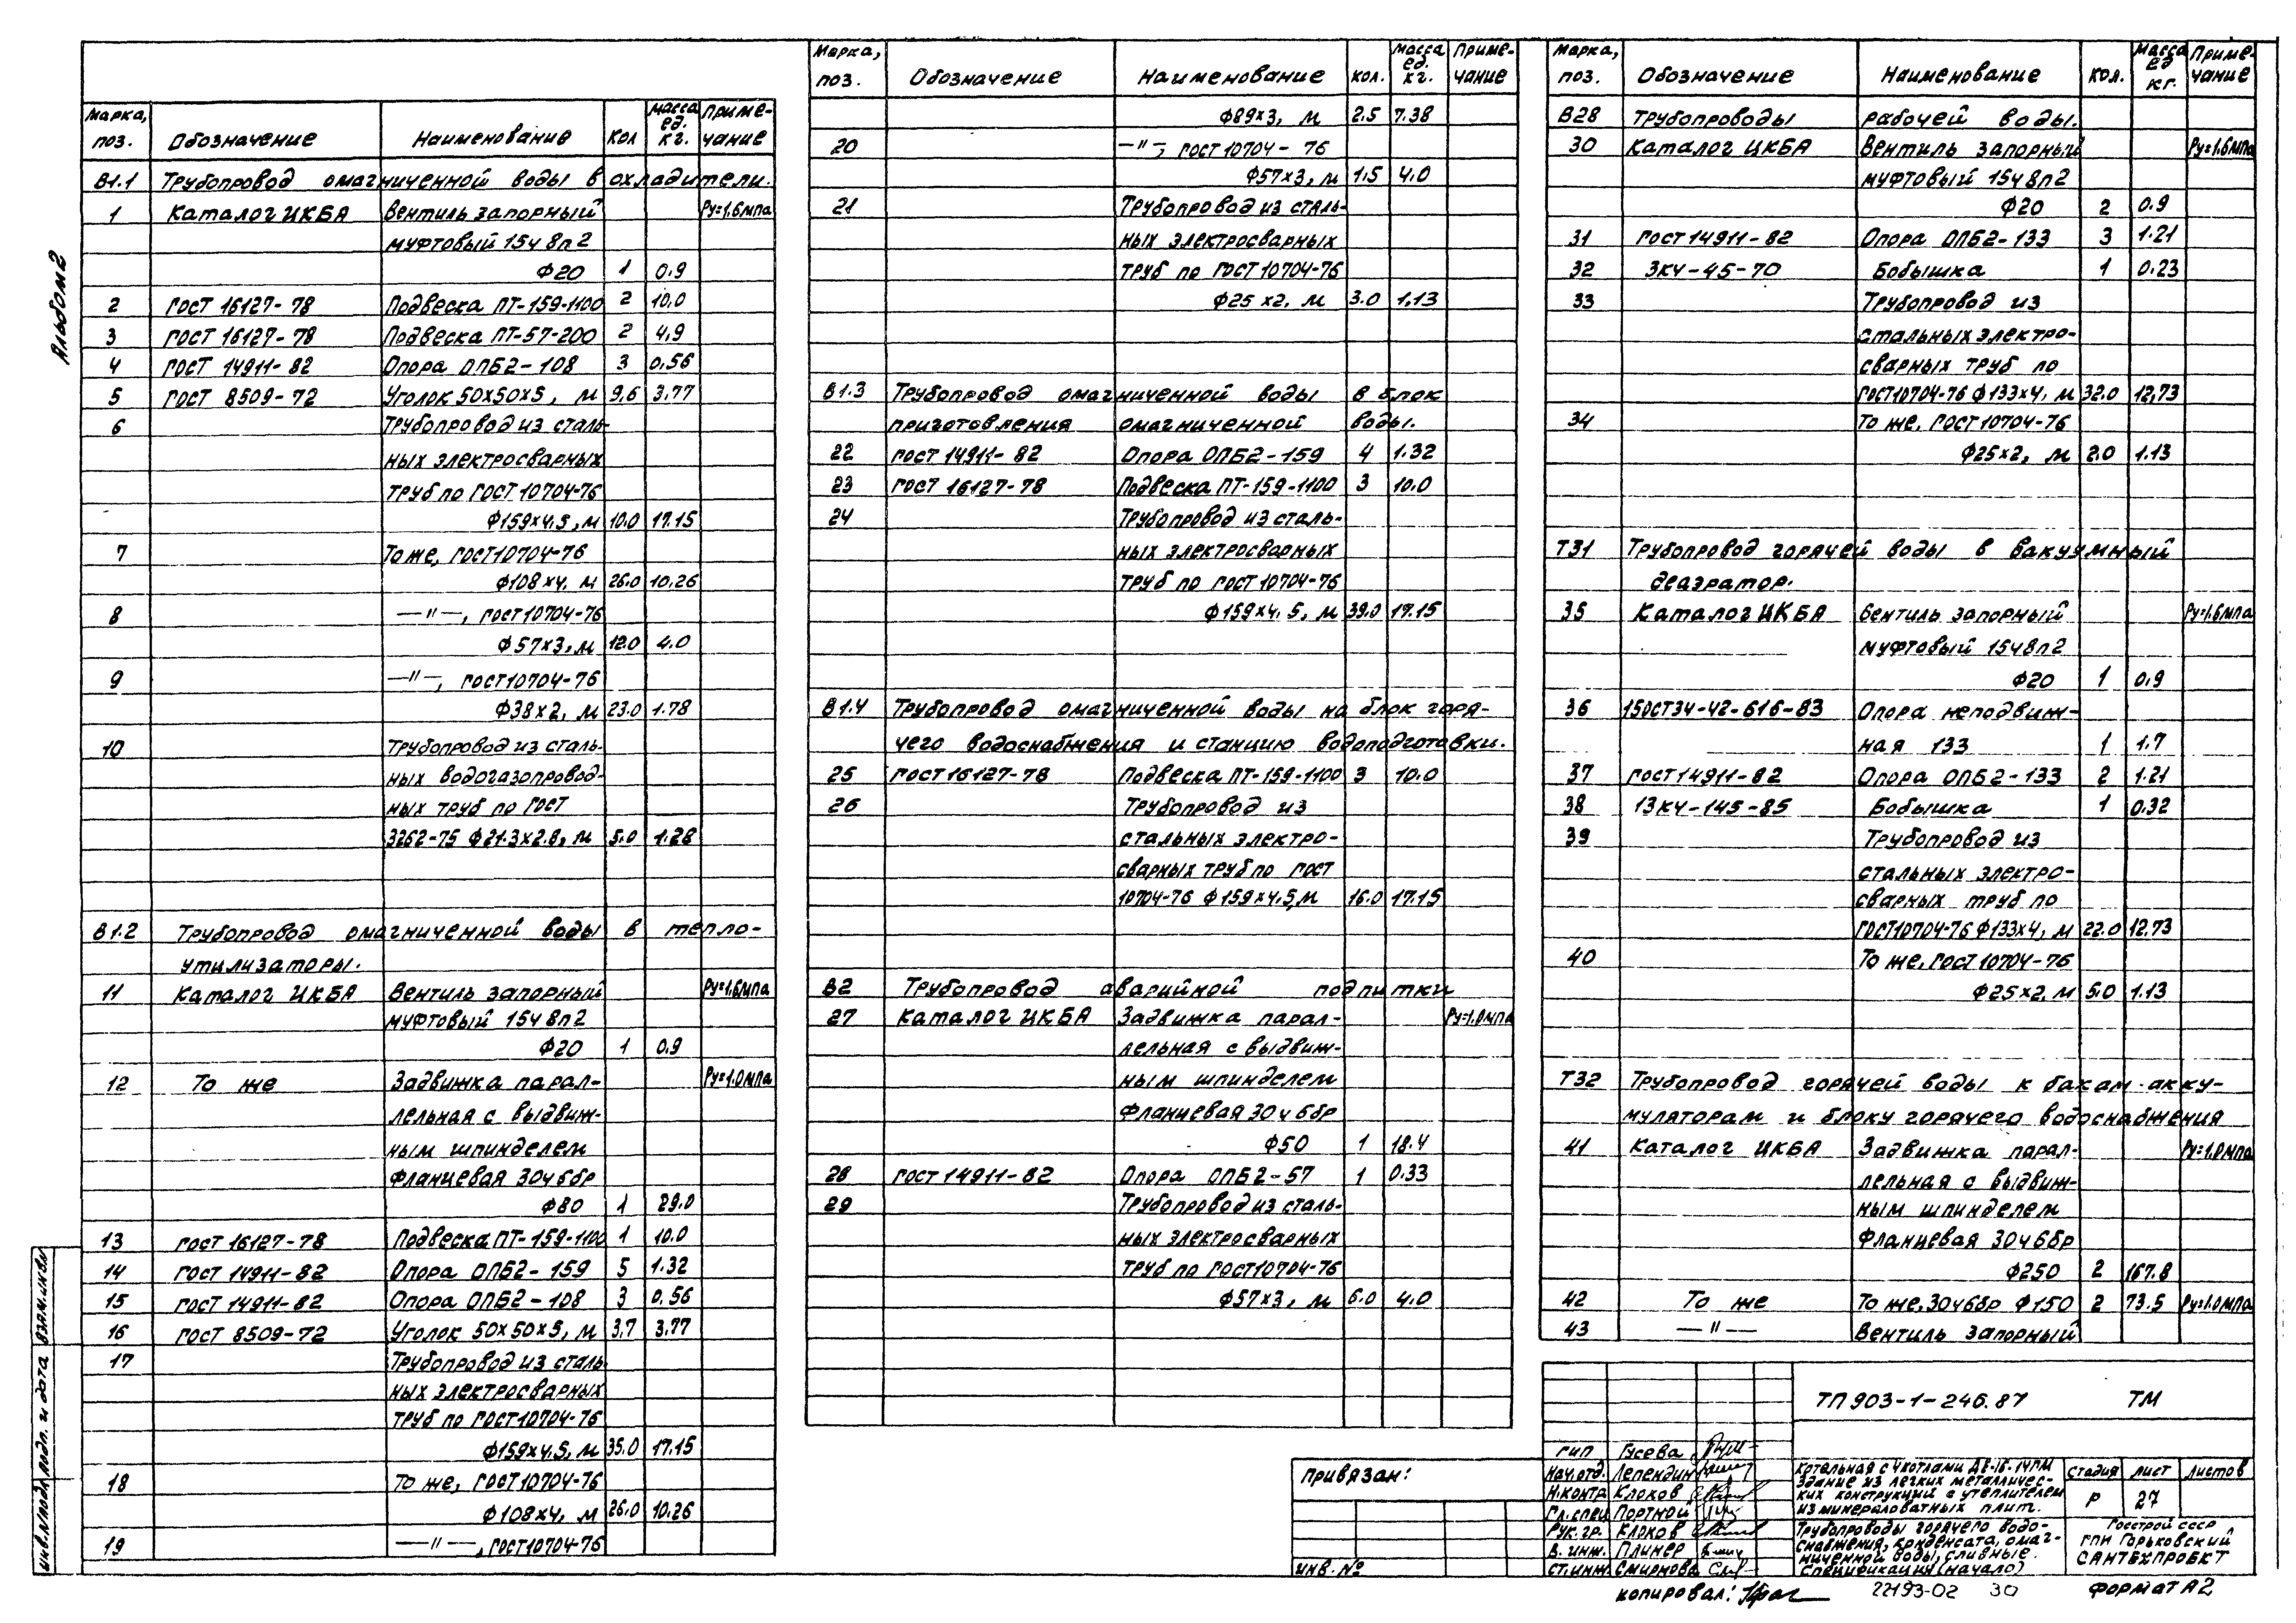 Альбом 2
Марка, поз. Обозначение Наименование Кол Масса ед. кг. Примечание
В1.1 Трубопровод омагниченной воды в охладители.
1 Каталог ЦКБА Вентиль запорный Ру=1.6мпа
муфтовый 15ч8п2
Ф20 1 0.9
2 ГОСТ 16127-78 Подвеска ПТ-159-1100 2 10.0
3 ГОСТ 16127-78 Подвеска ПТ-57-200 2 4,9
4 ГОСТ 14911-82 Опора ОПБ2-108 3 0.56
5 ГОСТ 8509-72 Уголок 50х50х5, м 9,6 3.77
6 Трубопровод из сталь-
ных электросварных
труб по ГОСТ 10704-76
Ф159х4.5, м 10.0 17.15
7 То же, ГОСТ 10704-76
Ф108х4, м 26.0 10.26
8 —"—, ГОСТ 10704-76
Ф57х3, м 12.0 4.0
9 —"—, ГОСТ 10704-76
Ф38х2, м 23.0 1.78
10 Трубопровод из сталь-
ных водогазопровод-
ных труб по ГОСТ
3262-75 Ф21.3х2.8, м 5.0 1.28
В1.2 Трубопровод омагниченной воды в тепло-
утилизаторы.
11 Каталог ЦКБА Вентиль запорный Ру=1.6мпа
муфтовый 15ч8п2
Ф20 1 0.9
12 То же Задвижка парал- Ру=1.0мпа
лельная с выдвиж-
ным шпинделем
фланцевая 30ч6бр
Ф80 1 29.0
13 ГОСТ 16127-78 Подвеска ПТ-159-1100 1 10.0
14 ГОСТ 14911-82 Опора ОПБ2-159 5 1.32
15 ГОСТ 14911-82 Опора ОПБ2-108 3 0.56
16 ГОСТ 8509-72 Уголок 50х50х5, м 3.7 3.77
17 Трубопровод из сталь-
ных электросварных
труб по ГОСТ 10704-76
Ф159х4.5, м 35.0 17.15
18 То же, ГОСТ 10704-76
Ф108х4, м 26.0 10.26
19 —"—, ГОСТ 10704-76
Марка, поз. Обозначение Наименование кол. Масса ед. кг. Примечание
Ф89х3, м 2.5 7.38
20 —"—, ГОСТ 10704-76
Ф57х3, м 1.5 4.0
21 Трубопровод из сталь-
ных электросварных
труб по ГОСТ 10704-76
Ф25х2, м 3.0 1.13
В1.3 Трубопровод омагниченной воды в блок
приготовления омагниченной воды.
22 ГОСТ 14911-82 Опора ОПБ2-159 4 1.32
23 ГОСТ 16127-78 Подвеска ПТ-159-1100 3 10.0
24 Трубопровод из сталь-
ных электросварных
труб по ГОСТ 10704-76
Ф159х4.5, м 39.0 17.15
В1.4 Трубопровод омагниченной воды на блок горя-
чего водоснабжения и станцию водоподготовки.
25 ГОСТ 16127-78 Подвеска ПТ-159-1100 3 10.0
26 Трубопровод из
стальных электро-
сварных труб по ГОСТ
10704-76 Ф159х4.5, м 16.0 17.15
В2 Трубопровод аварийной подпитки
27 Каталог ЦКБА Задвижка парал- Ру=1.0мпа
лельная с выдвиж-
ным шпинделем
фланцевая 30ч6бр
Ф50 1 18.4
28 ГОСТ 14911-82 Опора ОПБ2-57 1 0.33
29 Трубопровод из сталь-
ных электросварных
труб по ГОСТ 10704-76
Ф57х3, м 6.0 4.0
Марка, поз. Обозначение Наименование кол. Масса ед кг. Примечание
В28 Трубопроводы рабочей воды.
30 Каталог ЦКБА Вентиль запорный Ру=1.6мпа
муфтовый 15ч8п2
Ф20 2 0.9
31 ГОСТ 14911-82 Опора ОПБ2-133 3 1.21
32 ЗК4-45-70 Бобышка 1 0.23
33 Трубопровод из
стальных электро-
сварных труб по
ГОСТ 10704-76 Ф133х4, м 32.0 12.73
34 То же, ГОСТ 10704-76
Ф25х2, м 2.0 1.13
Т31 Трубопровод горячей воды в вакуумный
деаэратор.
35 Каталог ЦКБА Вентиль запорный Ру=1.6мпа
муфтовый 15ч8п2
Ф20 1 0.9
36 15ОСТ34-42-616-83 Опора неподвиж-
ная 133 1 1.7
37 ГОСТ 14911-82 Опора ОПБ2-133 2 1.21
38 13К4-145-85 Бобышка 1 0.32
39 Трубопровод из
стальных электро-
сварных труб по
ГОСТ 10704-76 Ф133х4, м 22.0 12.73
40 То же, ГОСТ 10704-76
Ф25х2, м 5.0 1.13
Т32 Трубопровод горячей воды к бакам-акку-
муляторам и блоку горячего водоснабжения
41 Каталог ЦКБА Задвижка парал- Ру=1.0мпа
лельная с выдвиж-
ным шпинделем
фланцевая 30ч6бр
Ф250 2 167.8
42 То же То же, 30ч6бр Ф150 2 73.5 Ру=1.0мпа
43 —"— Вентиль запорный
ТП 903-1-246.87 ТМ
ГИП Гусева
Нач.отд. Лепендин
Н.контр Клоков
Гл.спец Портной
Рук.гр. Клоков
В.инж. Плинер
Ст.инж Смирнова
Котельная с 4 котлами ДЕ-16-14ГМ
Здание из легких металличес-
ких конструкций с утеплителем
из минераловатных плит.
Стадия Лист Листов
Р 27
Трубопроводы горячего водо-
снабжения, конденсата, омаг-
ниченной воды, сливные.
Спецификация (начало)
Госстрой СССР
ГПИ Горьковский
САНТЕХПРОЕКТ
Привязан:
ИНВ. №
Инв.№подл Подп. и дата Взам.инв№
Копировал:
22193-02 30
Формат А2